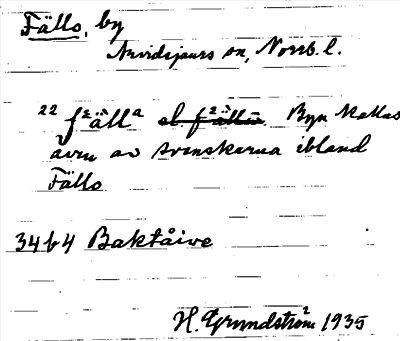 Fällo, by
Arvidsjaurs sn, Norrb. l.
22 fällª el. fällū. Byn kallas
även av svenskarna ibland
Fällo
34b4 Baktåive
H. Grundström 1935